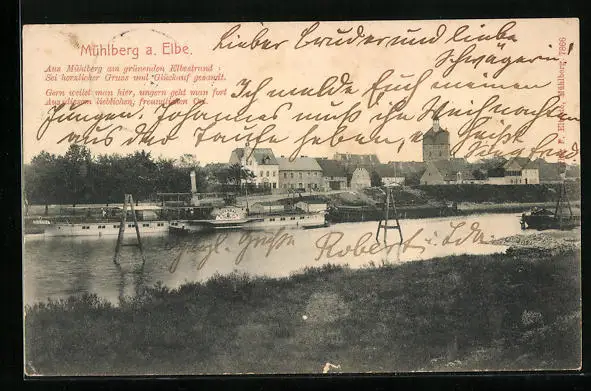 Mühlberg a. Elbe.
Aus Mühlberg am grünenden Elbestrand :
Sei herzlicher Gruss und Glückauf gesandt.
Gern weilet man hier, ungern geht man fort
Aus diesem lieblichen, freundlichen Ort.
Lieber Bruder und liebe
Schwägerin!
Ich melde Euch meinen
Jungen. Johannes mag ich Weihnachten
aus der Taufe haben, er heißt
Herzl. Grüße Robert u. Ida
Mühlberg. 7886